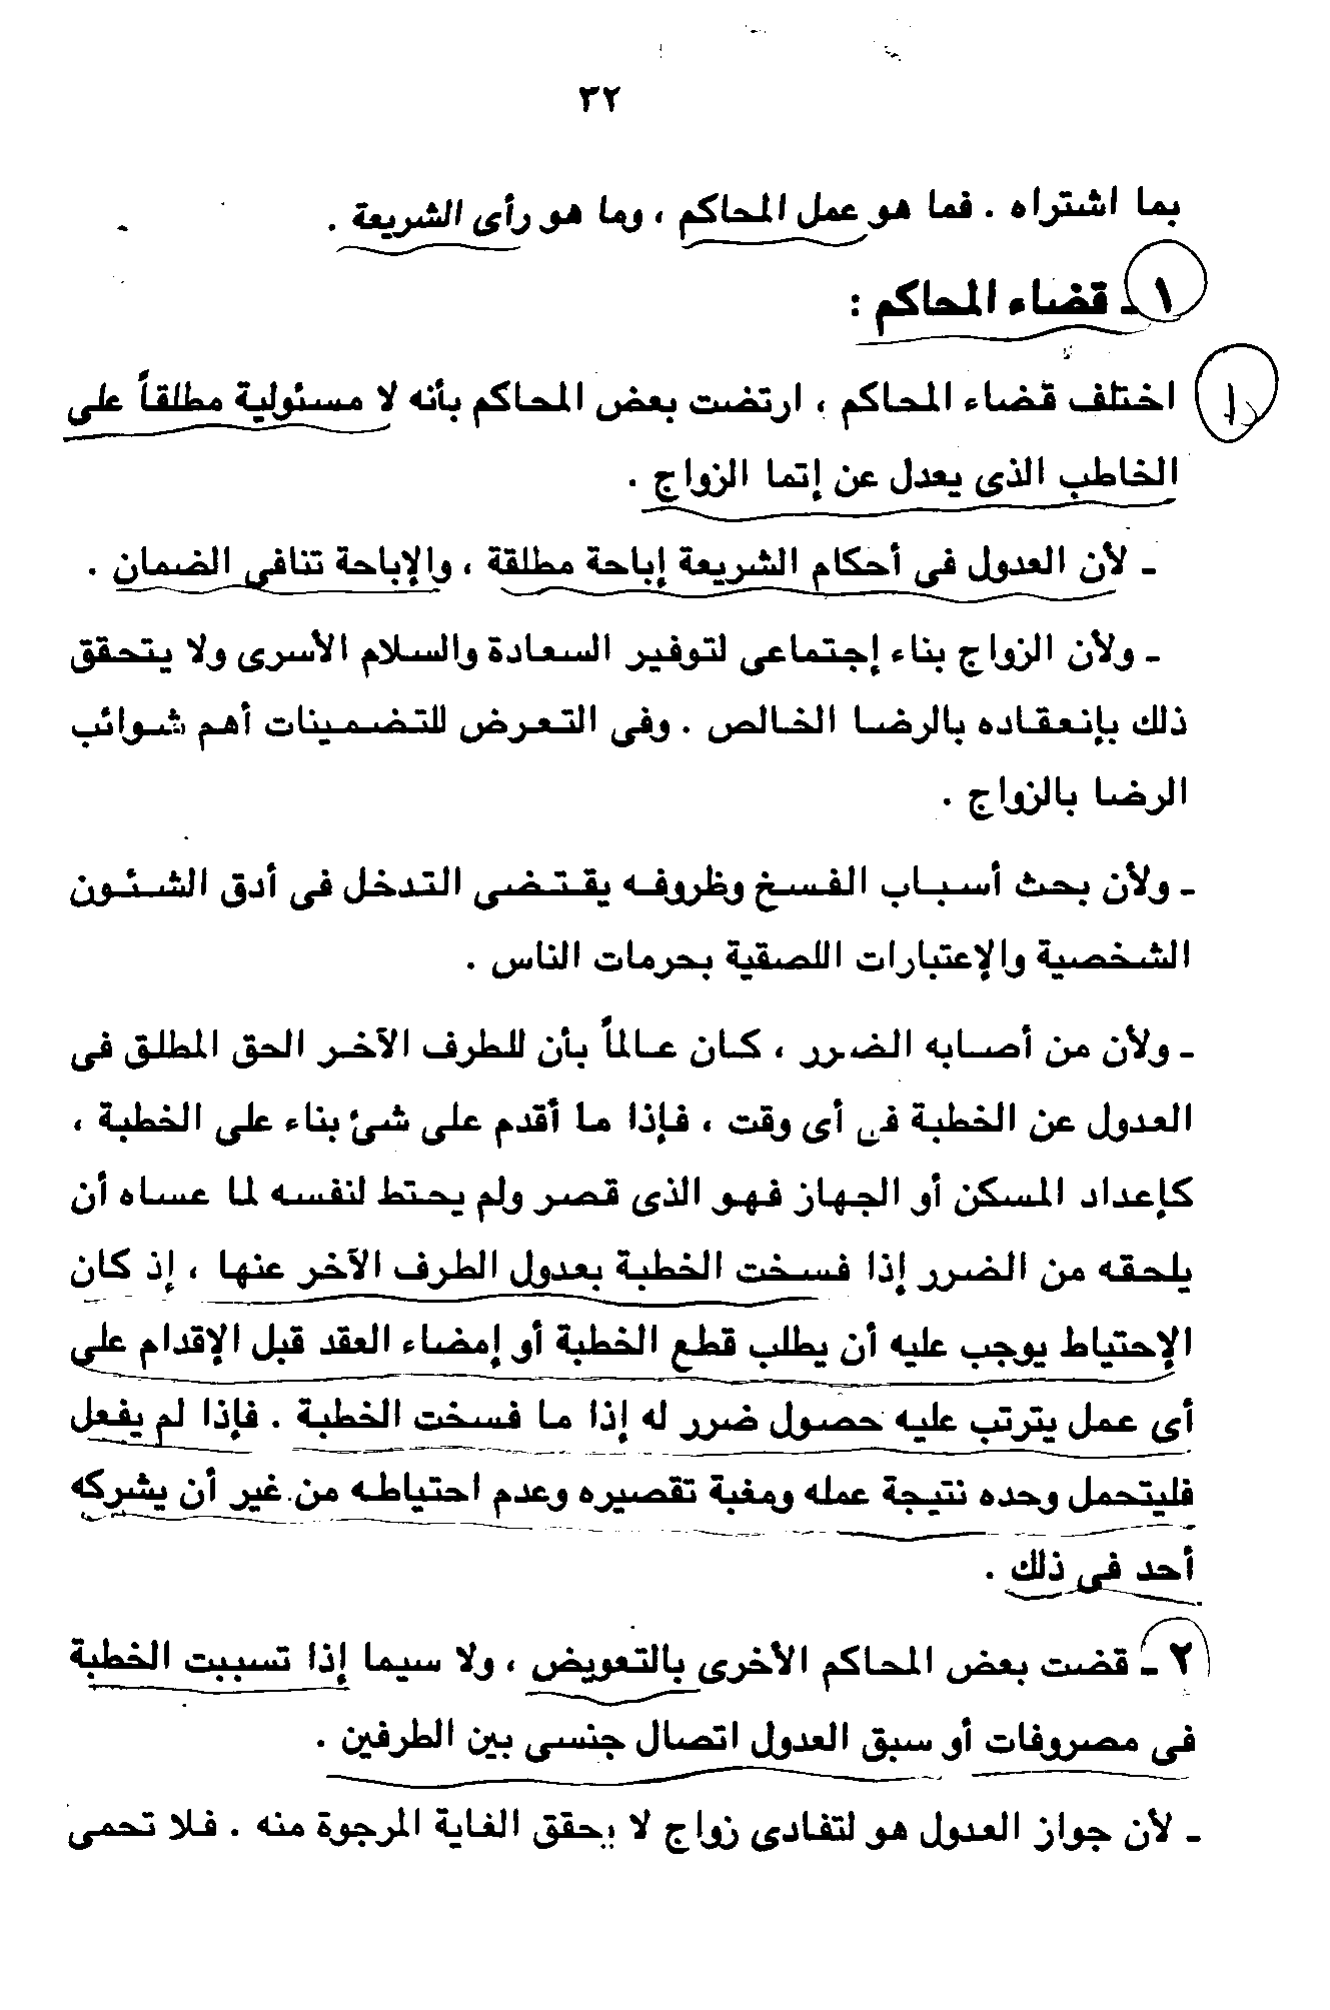 ٣٢
بما اشتراه . فما هو عمل المحاكم ، وما هو رأى الشريعة .
١ ـ قضاء المحاكم :
اختلف قضاء المحاكم ، ارتضت بعض المحاكم بأنه لا مسئولية مطلقاً على
الخاطب الذى يعدل عن إتما الزواج .
ـ لأن العدول فى أحكام الشريعة إباحة مطلقة ، والإباحة تنافى الضمان .
ـ ولأن الزواج بناء إجتماعى لتوفير السعادة والسلام الأسرى ولا يتحقق
ذلك بإنعقاده بالرضا الخالص . وفى التعرض للتضمينات أهم شوائب
الرضا بالزواج .
ـ ولأن بحث أسباب الفسخ وظروفه يقتضى التدخل فى أدق الشئون
الشخصية والإعتبارات اللصقية بحرمات الناس .
ـ ولأن من أصابه الضرر ، كان عالماً بأن للطرف الآخر الحق المطلق فى
العدول عن الخطبة فى أى وقت ، فإذا ما أقدم على شئ بناء على الخطبة ،
كإعداد المسكن أو الجهاز فهو الذى قصر ولم يحتط لنفسه لما عساه أن
يلحقه من الضرر إذا فسخت الخطبة بعدول الطرف الآخر عنها ، إذ كان
الإحتياط يوجب عليه أن يطلب قطع الخطبة أو إمضاء العقد قبل الإقدام على
أى عمل يترتب عليه حصول ضرر له إذا ما فسخت الخطبة . فإذا لم يفعل
فليتحمل وحده نتيجة عمله ومغبة تقصيره وعدم احتياطه من غير أن يشركه
أحد فى ذلك .
٢ ـ قضت بعض المحاكم الأخرى بالتعويض ، ولا سيما إذا تسببت الخطبة
فى مصروفات أو سبق العدول اتصال جنسى بين الطرفين .
ـ لأن جواز العدول هو لتفادى زواج لا يحقق الغاية المرجوة منه . فلا تحمى